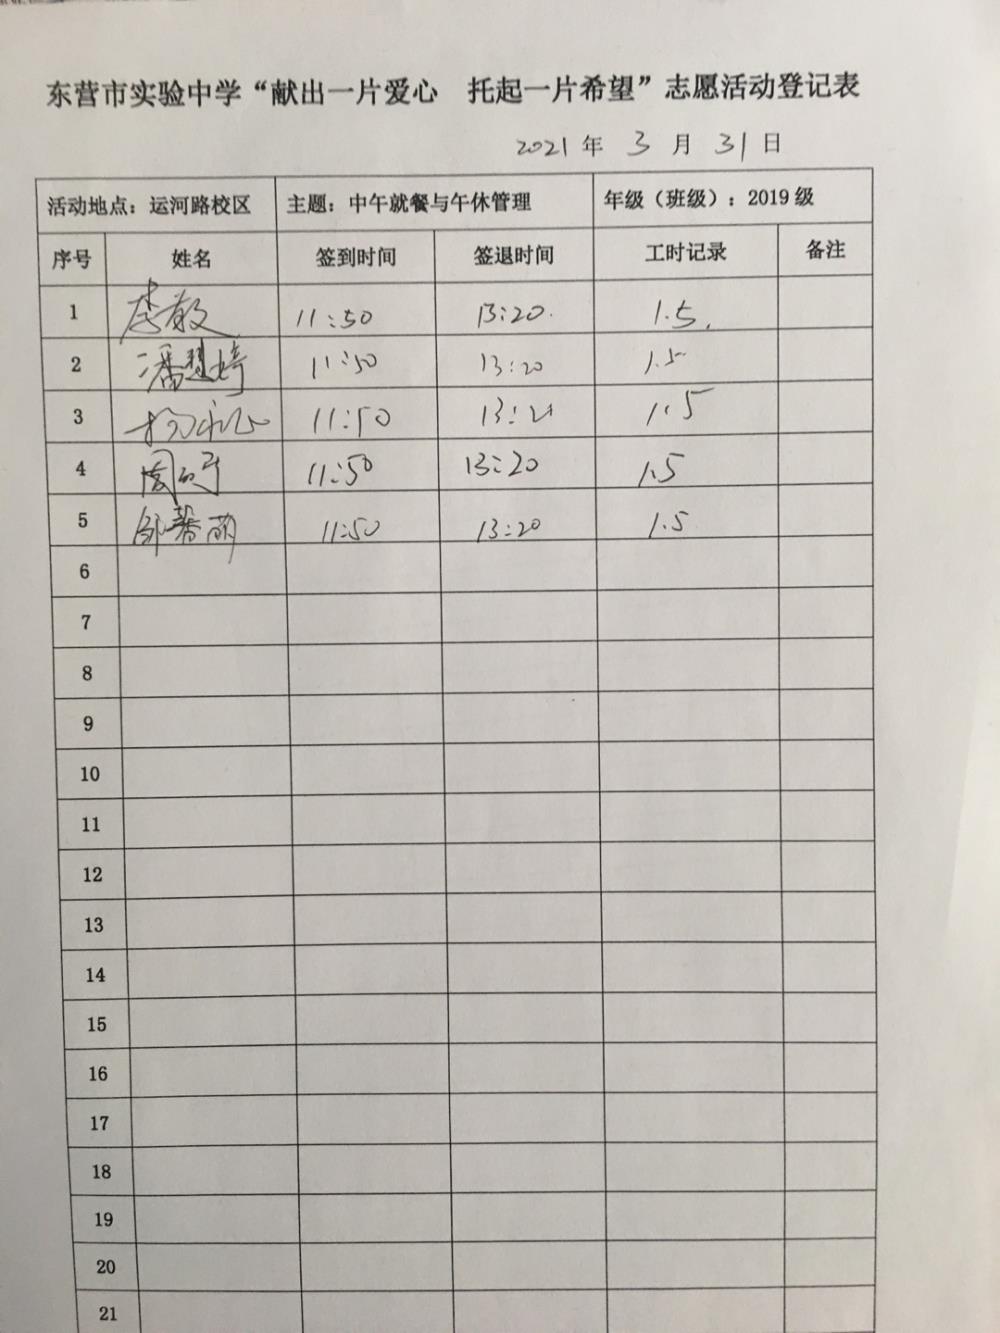 东营市实验中学“献出一片爱心 托起一片希望”志愿活动登记表
2021 年 3 月 31 日
活动地点：运河路校区 主题：中午就餐与午休管理 年级（班级）：2019 级
序号 姓名 签到时间 签退时间 工时记录 备注
1 李敏 11:50 13:20. 1.5.
2 潘慧婷 11:50 13:20 1.5
3 11:50 13:21 1.5
4 11:50 13:20 1.5
5 11:50 13:20 1.5
6
7
8
9
10
11
12
13
14
15
16
17
18
19
20
21